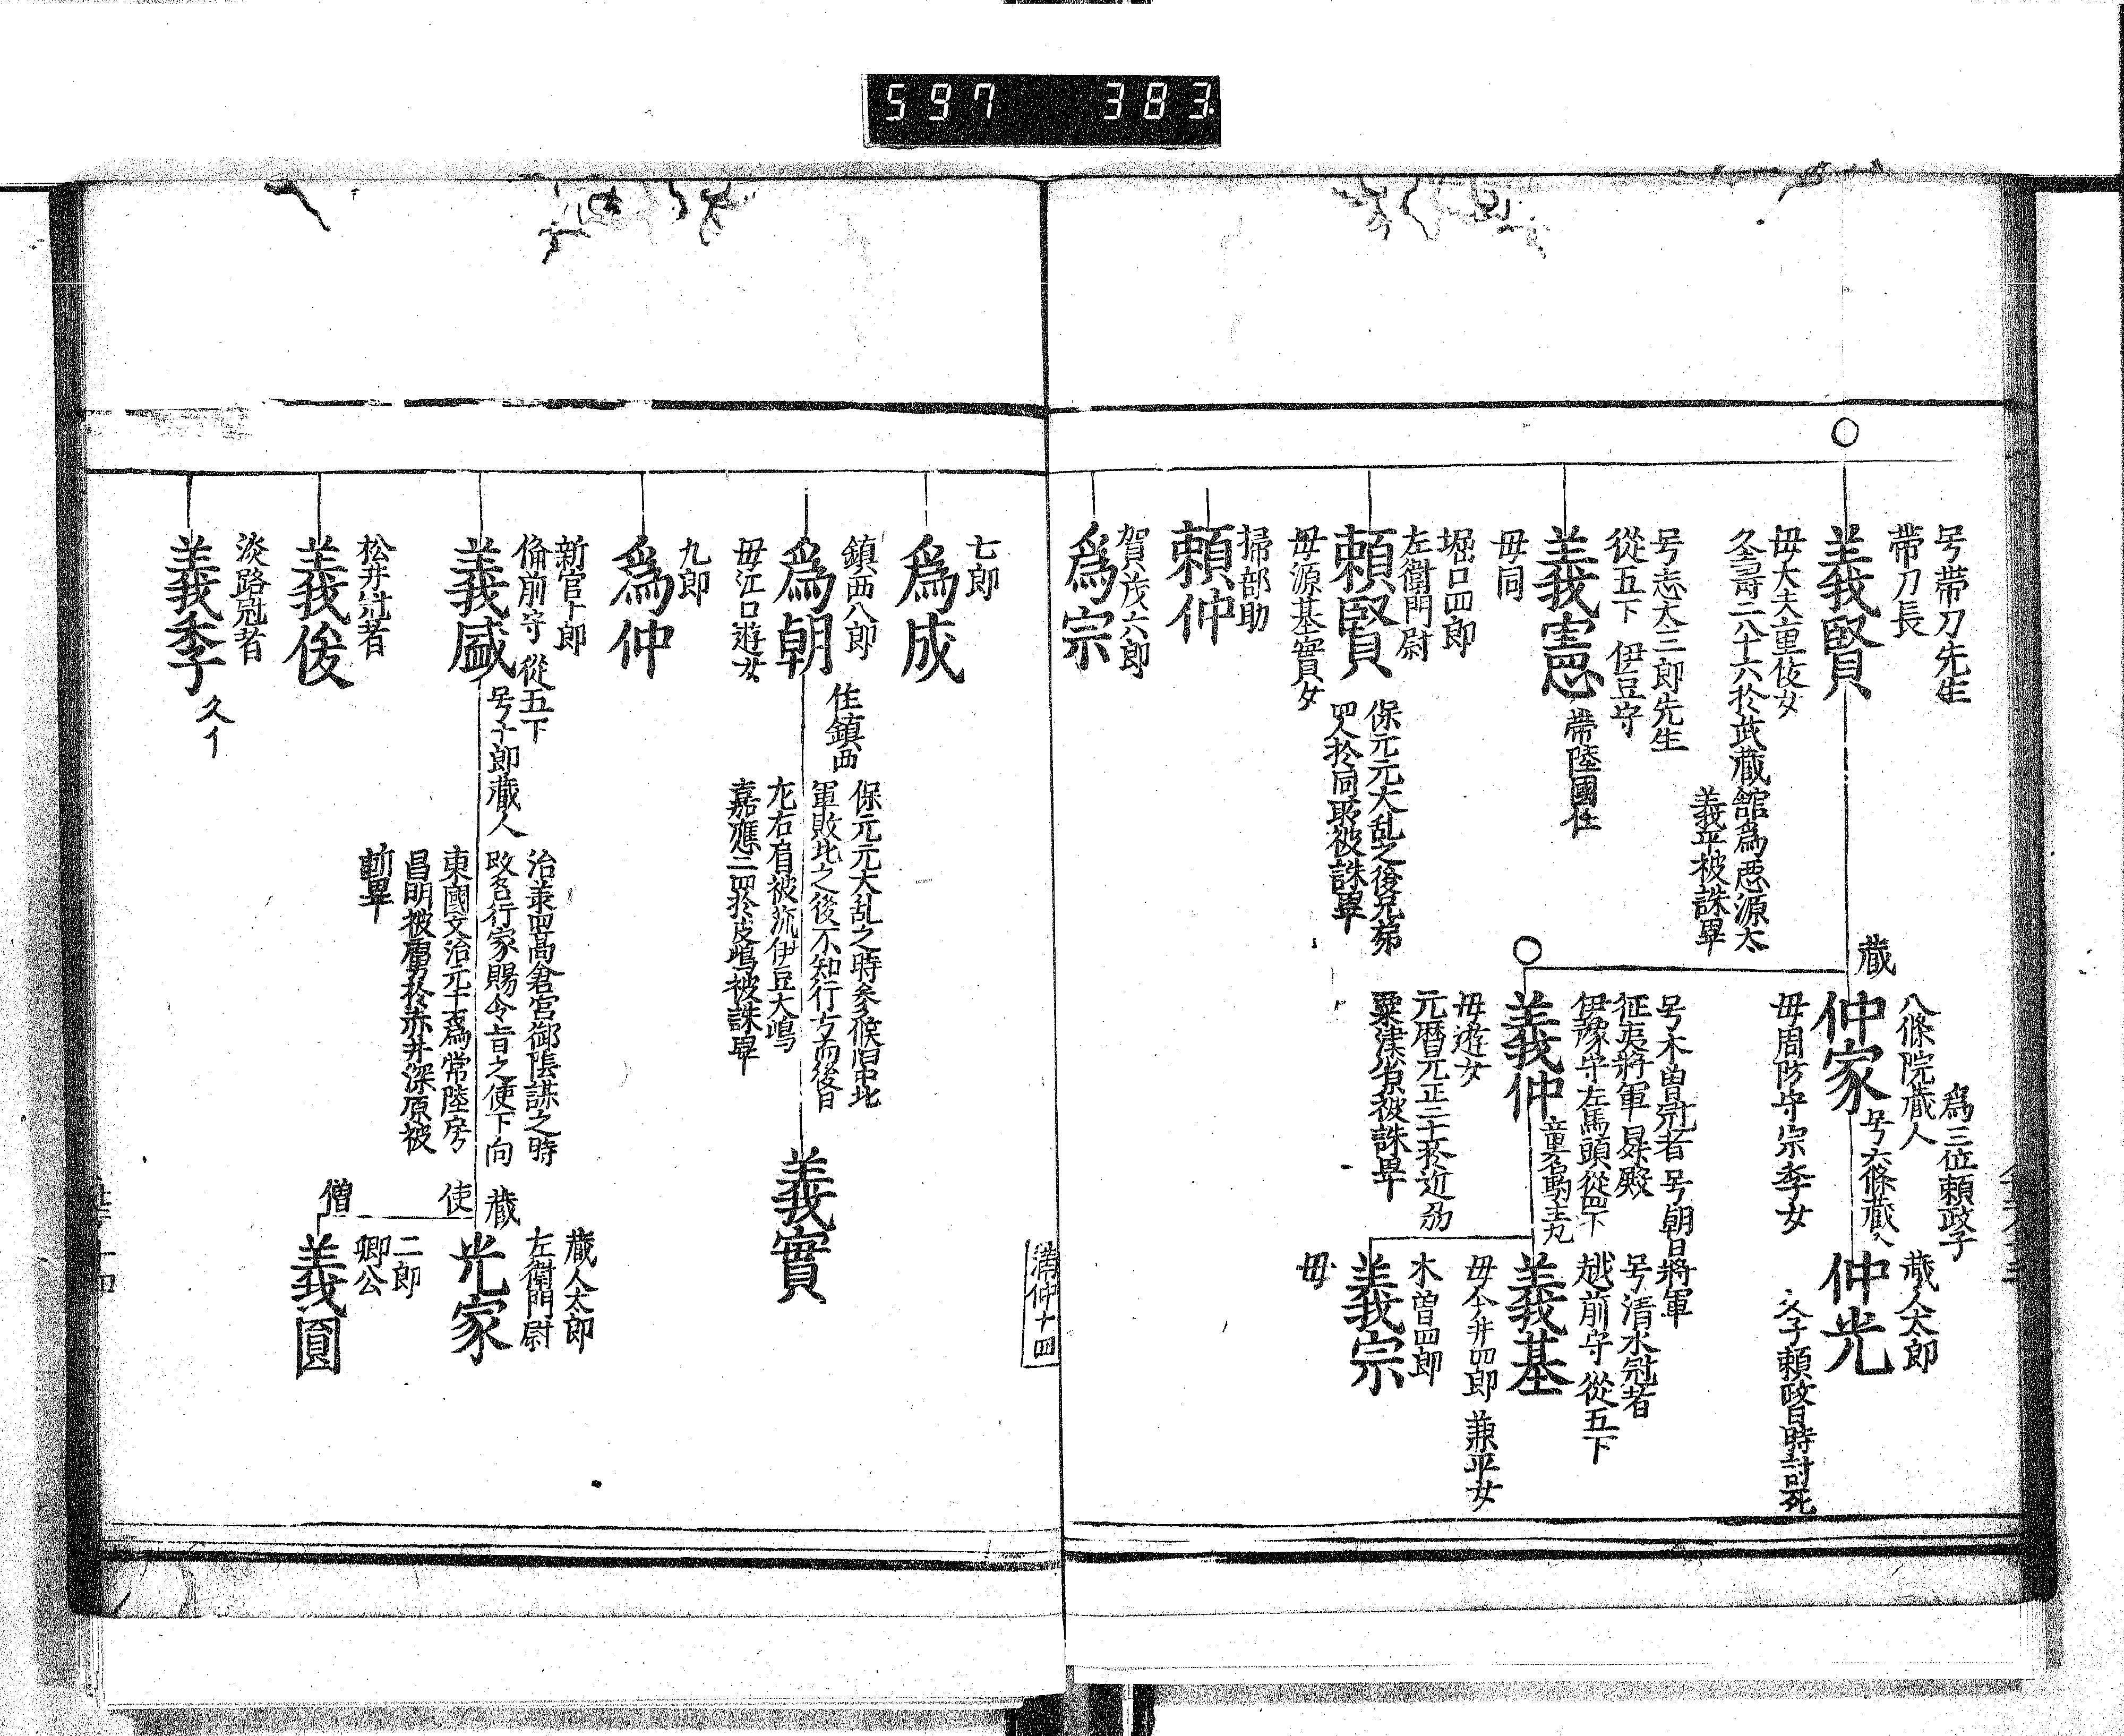 597 383
号帯刀先生
帯刀長
義賢
母大夫重俊女
久壽二八十六於武藏舘為悪源太
義平被誅畢
藏
為三位頼政子
八條院藏人
仲家
号六條藏人
母周防守宗季女
藏人太郎
仲光
父子頼政同時討死
号木曽冠者 号朝日将軍
征夷将軍
伊豫守左馬頭從四下
義仲
母遊女
元暦元正二十於近州
粟津
被誅畢
号清水冠者
越前守 從五下
義基
母今井四郎兼平女
木曽四郎
義宗
母
号志太三郎先生
從五下 伊豆守
義憲
常陸國住
母同
堀口四郎
左衛門尉
頼賢
保元元大乱之後兄弟
四人於同所被誅畢
母源基實女
掃部助
頼仲
賀茂六郎
為宗
満仲十四
七郎
為成
鎮西八郎
為朝
住鎮西
母江口遊女
保元元大乱之時参候
軍敗北之後不知行方而後日
左右肩被流伊豆大嶋
嘉應二四於
嶋被誅畢
義實
九郎
為仲
新宮十郎
備前守 從五下
義盛
号十郎藏人
治承四高倉宮御隠謀之時
改名行家賜令旨之使下向
東國文治元
為常陸房
昌明被虜於赤井深原被
斬畢
藏
使
藏人太郎
左衛門尉
光家
僧
二郎
卿公
義圓
松井冠者
義俊
淡路冠者
義季